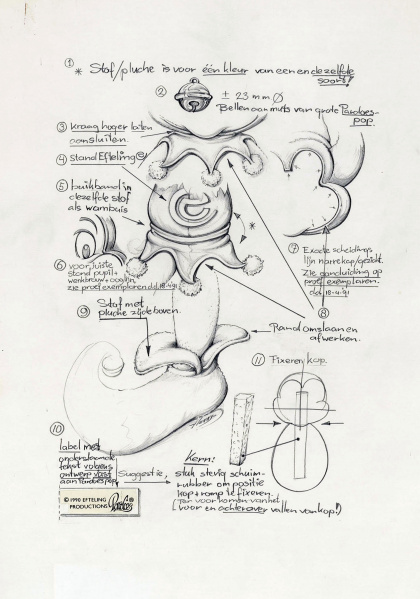 ① * Stof/pluche is voor één kleur van een en dezelfde
soort!
② ± 23 mm Ø
Bellen aan muts van grote Pardoes-
pop.
③ kraag hoger laten
aansluiten.
④ stand Efteling e
⑤ buikband in
dezelfde stof
als wambuis
⑥ voor juiste
stand pupil +
wenkbrauw + ooglijn,
zie proefexemplaren dd. 18-4-91
⑦ Exacte scheidings
lijn narrekap/gezicht.
Zie aanduiding op
proefexemplaren.
dd. 18-4-91
⑧
Rand omslaan en
afwerken.
⑨ Stof met
pluche zijde boven.
⑩
label met
onderstaande
tekst volgens
ontwerp vast
aan Pardoespop
Suggestie,
© 1990 EFTELING
PRODUCTIONS Pardoes®
⑪ Fixeren kop.
Kern:
stuk stevig schuim-
rubber om positie
kop + romp te fixeren.
(Ter voorkoming van het
voor en achterover vallen van kop!)
*